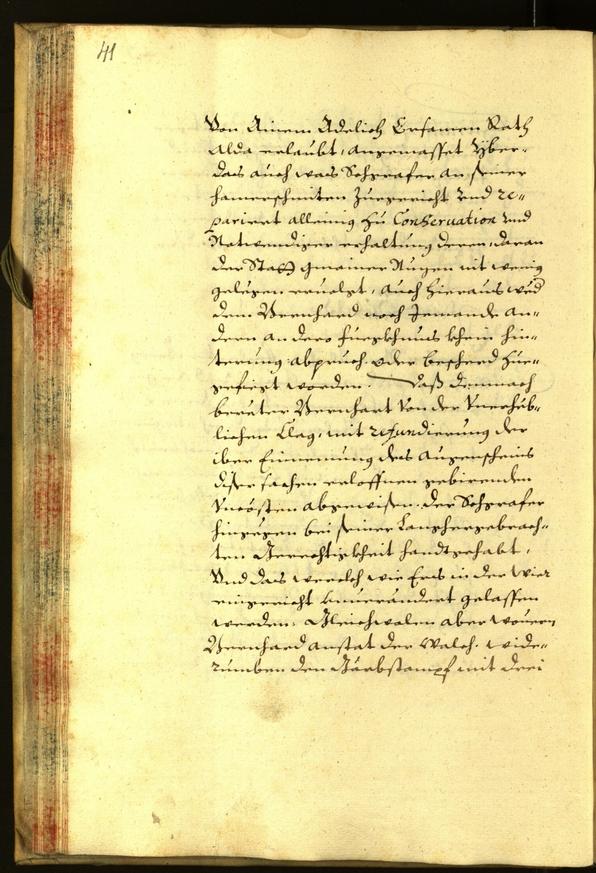 41
Von Ainem Adelich Ersamen Rath
Alda erlaubt, angemasset, Yber-
das auch was Schgrafer an seiner
hamerschmiten Zuegericht vnd re-
pariert alleinig zu Conseruation vnd
Notwendiger erhaltung deren, daran
der Statt gmainer Nuzen nit wenig
gelegen ervolgt, auch hieraus wed
dem Bernhard noch Jemandt an-
dern an dero fuegkhnus khein hin-
terung, abpruch oder beschwerd zue-
gefiegt worden. Daß demnach
berierter Bernhart von der vnerheb-
lichen Clag, mit refundierung der
iber Einnemung des Augenscheins
diser sachen erloffnen gebirenden
Vncosten abgewisen, der Schgrafer
hingegen bei seiner Langhergebrach-
ten Gerechtigkheit handtgehabt,
Vnd das werch wie Ers in der Wier
eingericht vnuerändert gelassen
werden. Gleichwolen aber wouern
Bernhard anstat der Walch, wide-
rumben den Färbstampf mit drei